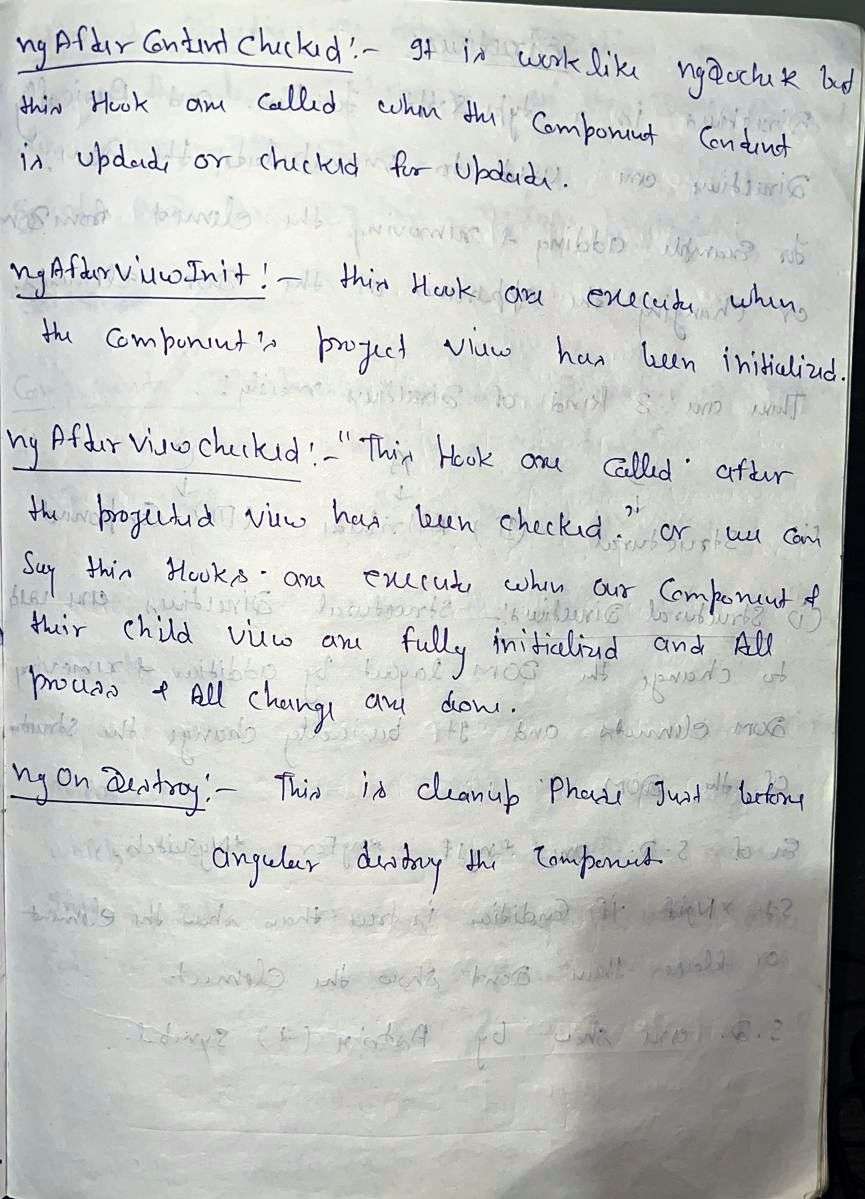 ngAfterContentChecked :- It is work like ngDocheck but
this Hook are called when the Component Content
is update or checked for update.
ngAfterViewInit :- this Hook are execute when
the component's project view has been initialized.
ngAfterViewChecked :- "This Hook are called after
the projected view has been checked." or we can
Say this Hooks are execute when our Component &
their child view are fully initialized and All
process & All change are done.
ngOnDestroy :- This is cleanup Phase Just before
angular destroy the Component